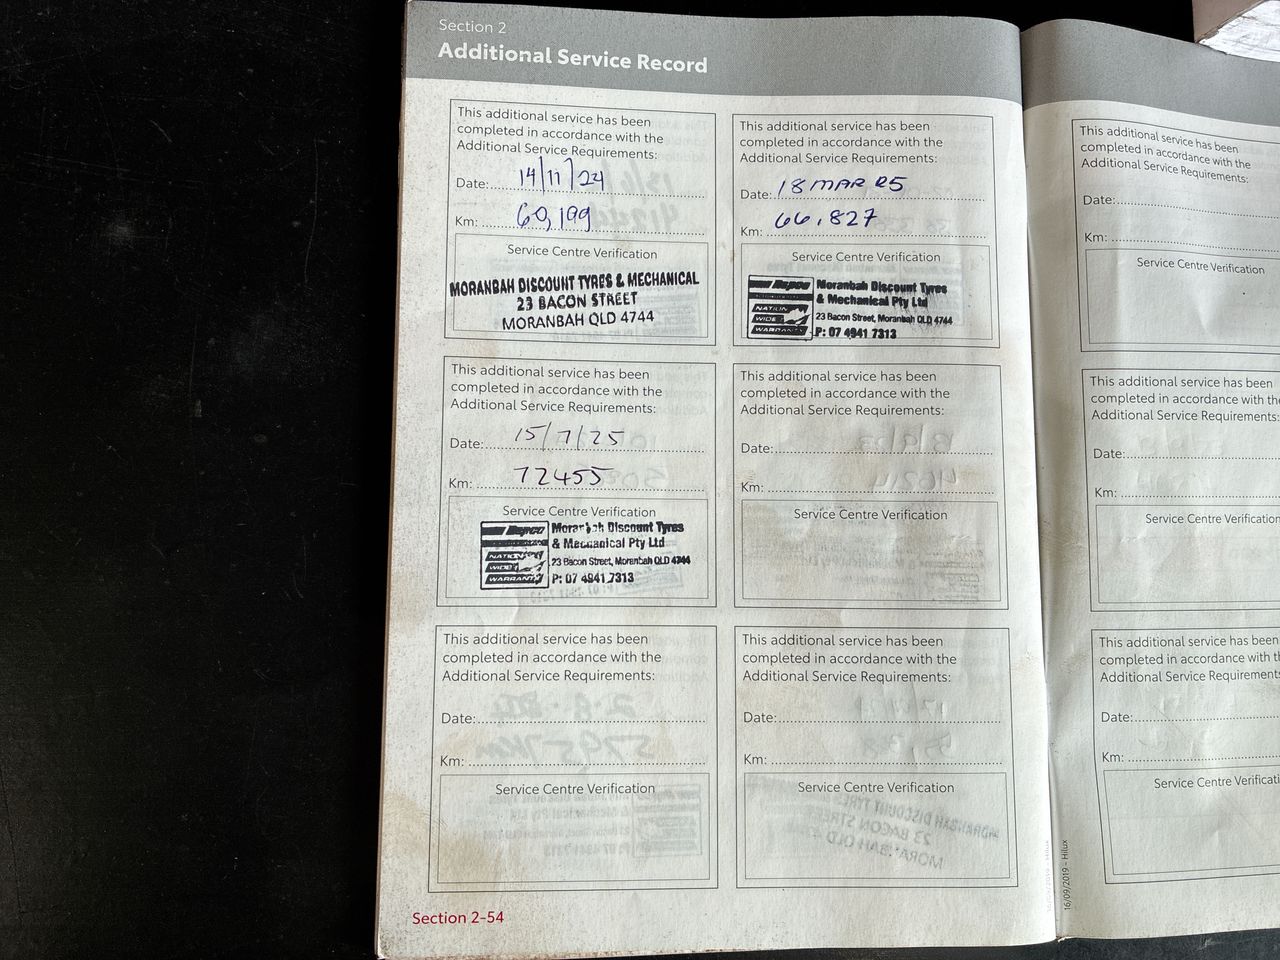 Section 2
Additional Service Record
This additional service has been
completed in accordance with the
Additional Service Requirements:
Date: 14/11/24
Km: 60,199
Service Centre Verification
MORANBAH DISCOUNT TYRES & MECHANICAL
23 BACON STREET
MORANBAH QLD 4744
This additional service has been
completed in accordance with the
Additional Service Requirements:
Date: 18 MAR 25
Km: 66,827
Service Centre Verification
Repco
NATION
WIDE
WARRANTY
Moranbah Discount Tyres
& Mechanical Pty Ltd
23 Bacon Street, Moranbah QLD 4744
P: 07 4941 7313
This additional service has been
completed in accordance with the
Additional Service Requirements:
Date: 15/7/25
Km: 72455
Service Centre Verification
Repco
NATION
WIDE
WARRANTY
Moranbah Discount Tyres
& Mechanical Pty Ltd
23 Bacon Street, Moranbah QLD 4744
P: 07 4941 7313
This additional service has been
completed in accordance with the
Additional Service Requirements:
Date:
Km:
Service Centre Verification
This additional service has been
completed in accordance with the
Additional Service Requirements:
Date:
Km:
Service Centre Verification
This additional service has been
completed in accordance with the
Additional Service Requirements:
Date:
Km:
Service Centre Verification
Section 2-54
This additional service has been
completed in accordance with the
Additional Service Requirements:
Date:
Km:
Service Centre Verification
This additional service has been
completed in accordance with the
Additional Service Requirements:
Date:
Km:
Service Centre Verification
This additional service has been
completed in accordance with
Additional Service Requirements
Date:
Km:
Service Centre
16/09/2019 - Hilux